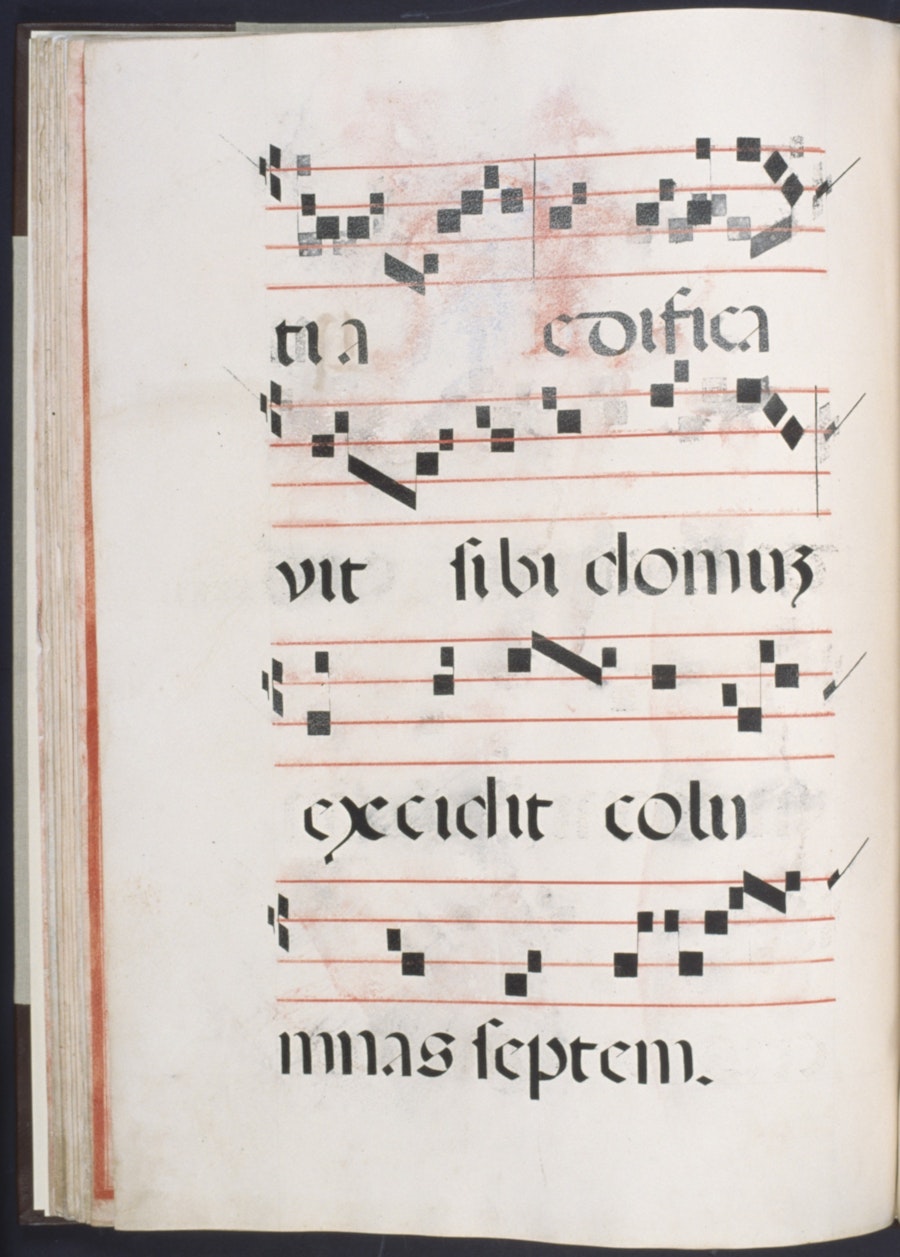 tia edifica
vit sibi domuʒ
excidit colu
mnas septem.